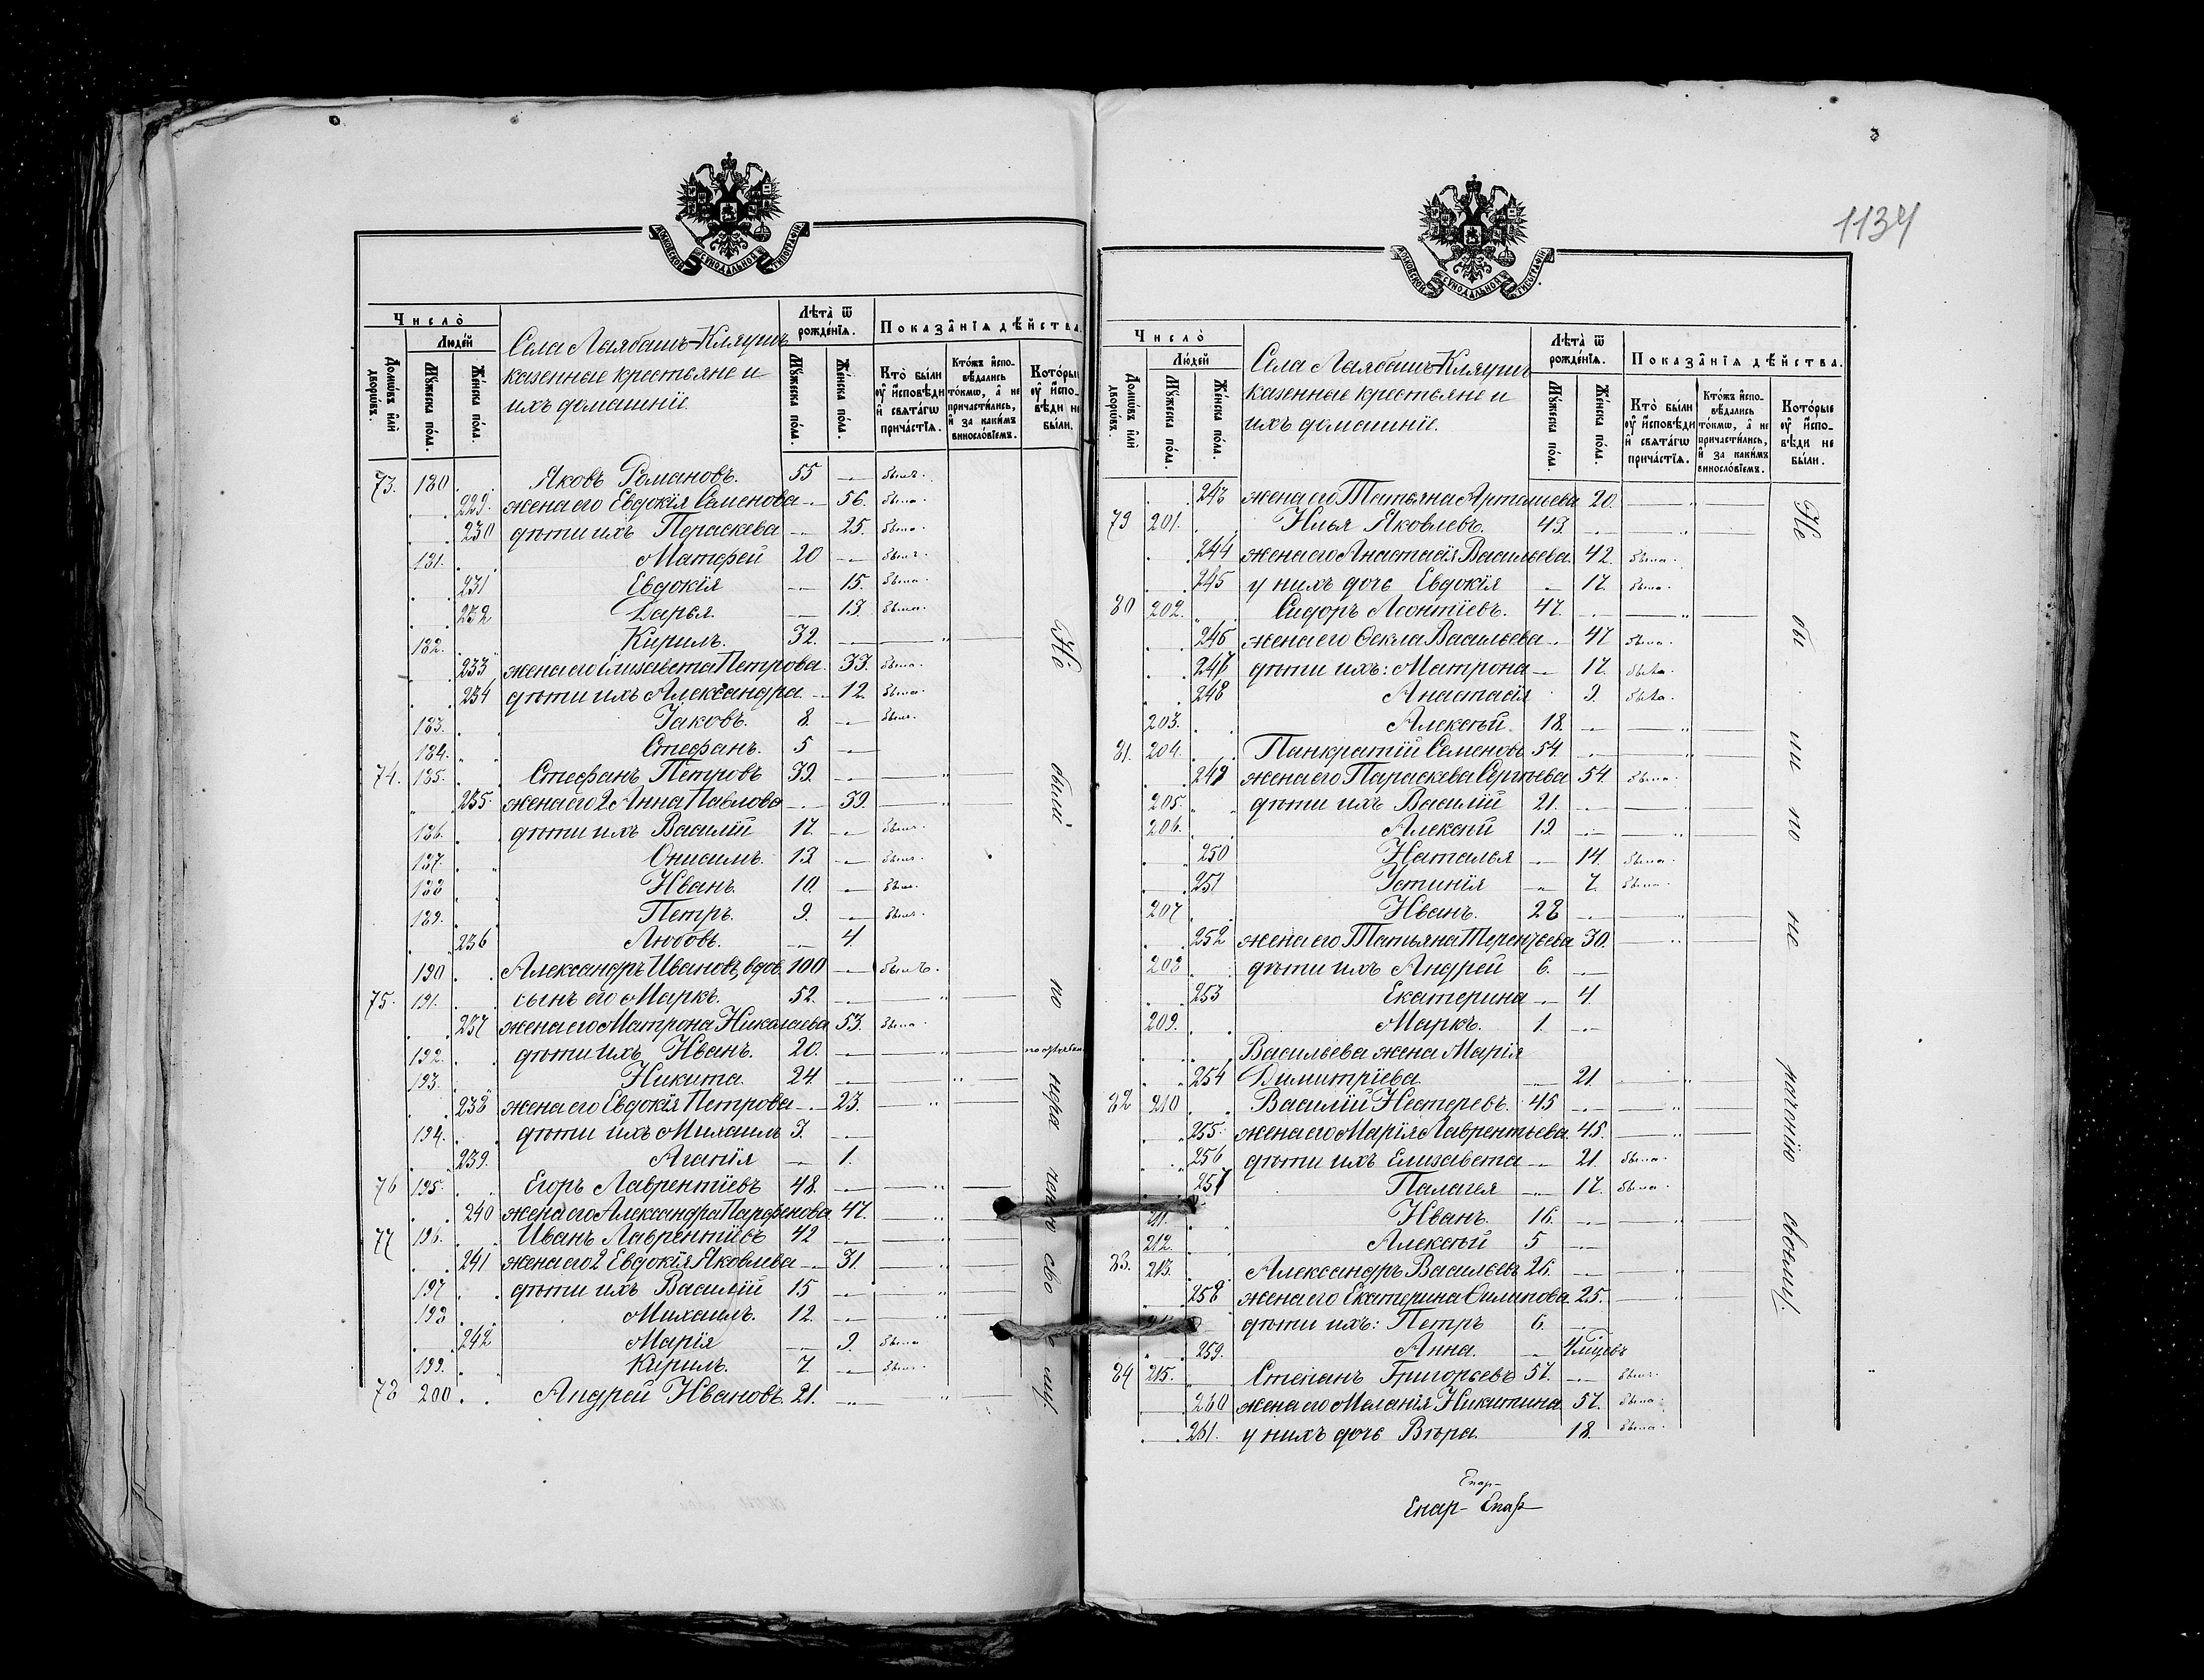 МОСКОВСКОЙ СѴНОДАЛЬНОЙ ТИПОГРАФІИ
Число̀
Людей
Домѡвъ и҆лѝ дворѡвъ.
Мꙋжеска пола.
Женска пола.
Села Ляябашъ-Кляушъ
казенные крестьяне и
ихъ домашніе.
Лѣта̀ ѿ рождéнїѧ.
Мꙋжеска пола.
Женска пола.
Показа̂нїѧ дѣ́йства.
Кто̀ были ᲂу҆ и҆сповѣди и҆ свѧта́гѡ прича́стїѧ.
Кто́жъ и҆сповѣдались то́кмѡ, а҆ не причасти́лись, и҆ за каки́мъ винослóвїемъ.
Которы ᲂу҆ и҆сповѣди не бы́ли.
73. 180 Яковъ Романовъ. 55 — былъ.
229. жена его Евдокія Семенова — 56. была.
230 дѣти ихъ Пераскева — 25. была.
181. Матѳей 20 — былъ.
231 Евдокія — 15. была.
232 Дарья. — 13. была.
182. Кирилъ. 32. — „ —
233 жена его Елизавета Петрова. 33. была.
234 дѣти ихъ Александра — 12. была.
183. Іаковъ. 8. — былъ.
184. Стефанъ. 5 —
74. 185. Стефанъ Петровъ 39. — „ —
235. жена его 2 Анна Павлова — 39. — „ —
186. дѣти ихъ Василій 17. — былъ.
187. Онисимъ. 13 — былъ.
188 Иванъ. 10. — былъ.
189. Петръ. 9. — былъ.
236 Любовь. — 4
190 Александръ Ивановъ, вдов. 100 — былъ.
75. 191. сынъ его Маркъ. 52. — „ —
237 жена его Матрона Николаева 53. была.
192. дѣти ихъ Иванъ. 20. — „ —
193. Никита. 24. — „ —
238 жена его Евдокія Петрова — 23. — „ —
194. дѣти ихъ Михаилъ 3. —
239. Агапія — 1.
76 195. Егоръ Лаврентіевъ 48. — „ —
240 жена его Александра Парфенова 47. — „ —
77 196. Иванъ Лаврентіевъ 42 — „ —
241 жена его 2 Евдокія Яковлева — 31. — „ —
197 дѣти ихъ Василій 15 — „ —
198 Михаилъ. 12. — „ —
242 Марія — 9. была
199. Кирилъ. 7. — былъ.
78 200. Андрей Ивановъ. 21. — „ —
Не были по
1134
МОСКОВСКОЙ СѴНОДАЛЬНОЙ ТИПОГРАФІИ
Число̀
Людей
Домѡвъ и҆лѝ дворѡвъ.
Мꙋжеска пола.
Женска пола.
Села Ляябашъ-Кляушъ
казенные крестьяне и
ихъ домашніе.
Лѣта̀ ѿ рождéнїѧ.
Мꙋжеска пола.
Женска пола.
Показа̂нїѧ дѣ́йства.
Кто̀ были ᲂу҆ и҆сповѣди и҆ свѧта́гѡ прича́стїѧ.
Кто́жъ и҆сповѣдались то́кмѡ, а҆ не причасти́лись, и҆ за каки́мъ винослóвїемъ.
Которые ᲂу҆ и҆сповѣди не бы́ли.
243 жена его Татьяна Артамиева 20. — „ —
79 201. Илья Яковлевъ. 43. — „ —
244 жена его Анастасія Васильева. 42. была.
245 у нихъ дочь Евдокія — 17. была.
80 202. Сидоръ Леонтіевъ. 47. — „ —
246 жена его Ѳекла Васильева — 47 была.
247 дѣти ихъ: Матрона — 17. была.
248 Анастасія 9. была.
203. Алексѣй 18. — „ —
81. 204. Панкратій Семеновъ 54. — „ —
249 жена его Параскева Сергѣева 54. была.
205. дѣти ихъ Василій 21. — „ —
206. Алексѣй 19. — „ —
250 Наталья — 14. была.
251 Устинія — 7. была.
207 Иванъ. 28 — „ —
252 жена его Татьяна Терентьева 30. — „ —
208 дѣти ихъ Андрей 6. —
253 Екатерина — 4.
209. Маркъ. 1. —
Васильева жена Марія
254 Димитріева. — 21. — „ —
82 210 Василій Нестеревъ. 45 — „ —
255. жена его Марія Лаврентьева. 45. — „ —
256 дѣти ихъ Елизавета — 21. была.
257 Палагея — 17. была.
211. Иванъ. 16. — „ —
212. Алексѣй 5 —
83. 213. Александръ Васильевъ 26. — „ —
258 жена его Екатерина Филипова. 25. — „ —
дѣти ихъ: Петръ 6. —
259. Анна. —
84 215. Степанъ Григорьевъ 57. — былъ.
260 жена его Меланія Никитина 57. была.
261. у нихъ дочь Вѣра. 18. была.
Не были по не раченію своему.
Епар-
Епар- Епар